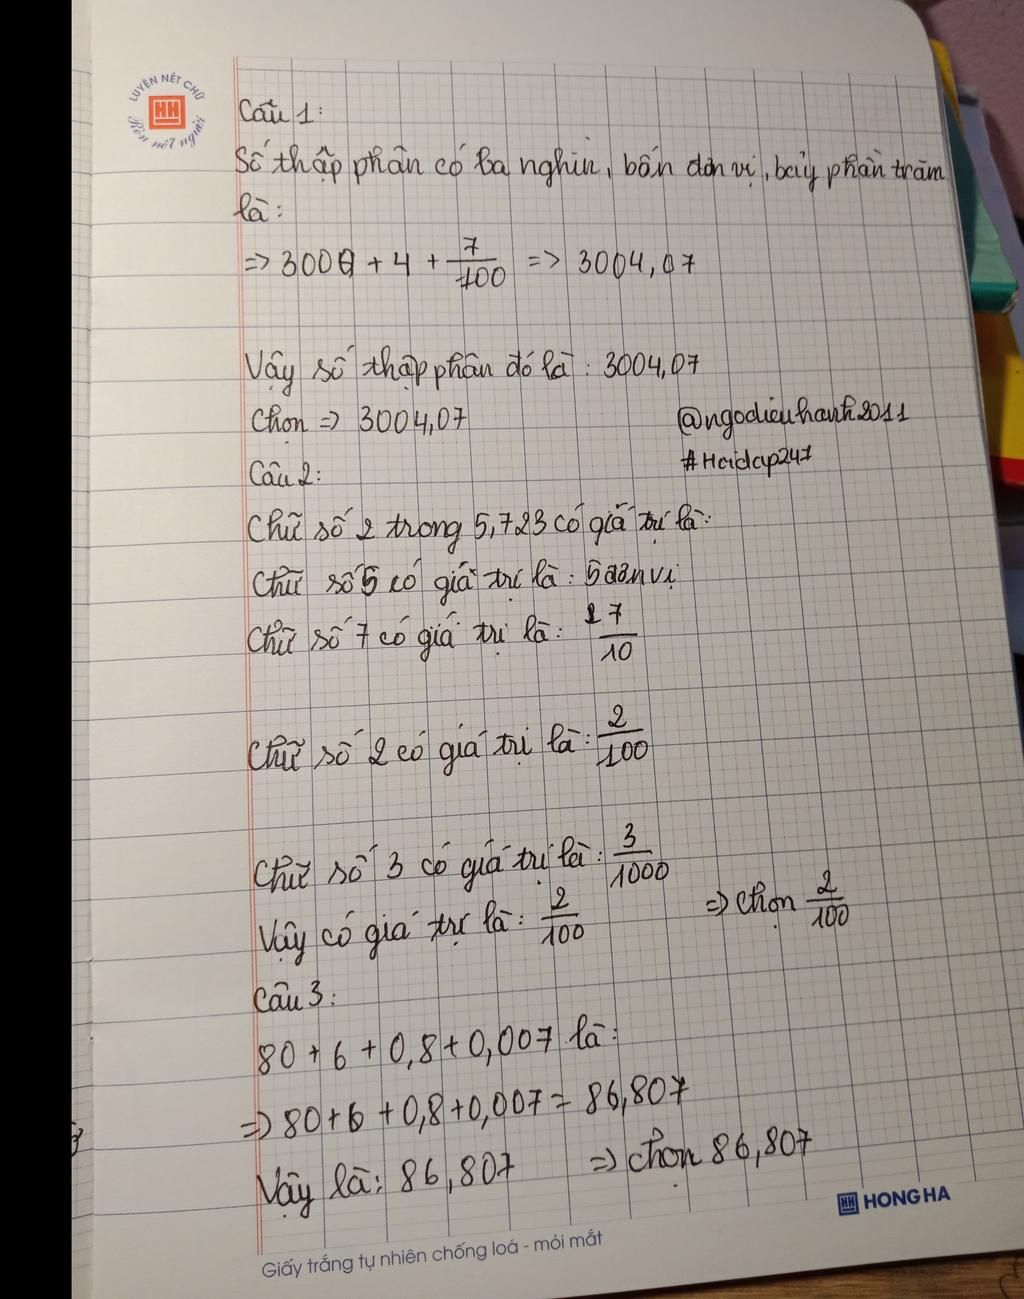 LUYỆN NÉT CHỮ
HH
Rèn nết người
Câu 1:
Số thập phân có ba nghìn, bốn đơn vị, bảy phần trăm
là:
=> 3000 + 4 + 7/100 => 3004,07
Vậy số thập phân đó là: 3004,07
Chọn => 3004,07
@ngodieuhanh2011
#Hoidap247
Câu 2:
Chữ số 2 trong 5,723 có giá trị là:
Chữ số 5 có giá trị là: 5 đơn vị
Chữ số 7 có giá trị là: 7/10
Chữ số 2 có giá trị là: 2/100
Chữ số 3 có giá trị là: 3/1000
Vậy có giá trị là: 2/100 => chọn 2/100
Câu 3:
80 + 6 + 0,8 + 0,007 là:
=> 80 + 6 + 0,8 + 0,007 = 86,807
Vậy là: 86,807 => chọn 86,807
HH HONG HA
Giấy trắng tự nhiên chống loá - mỏi mắt